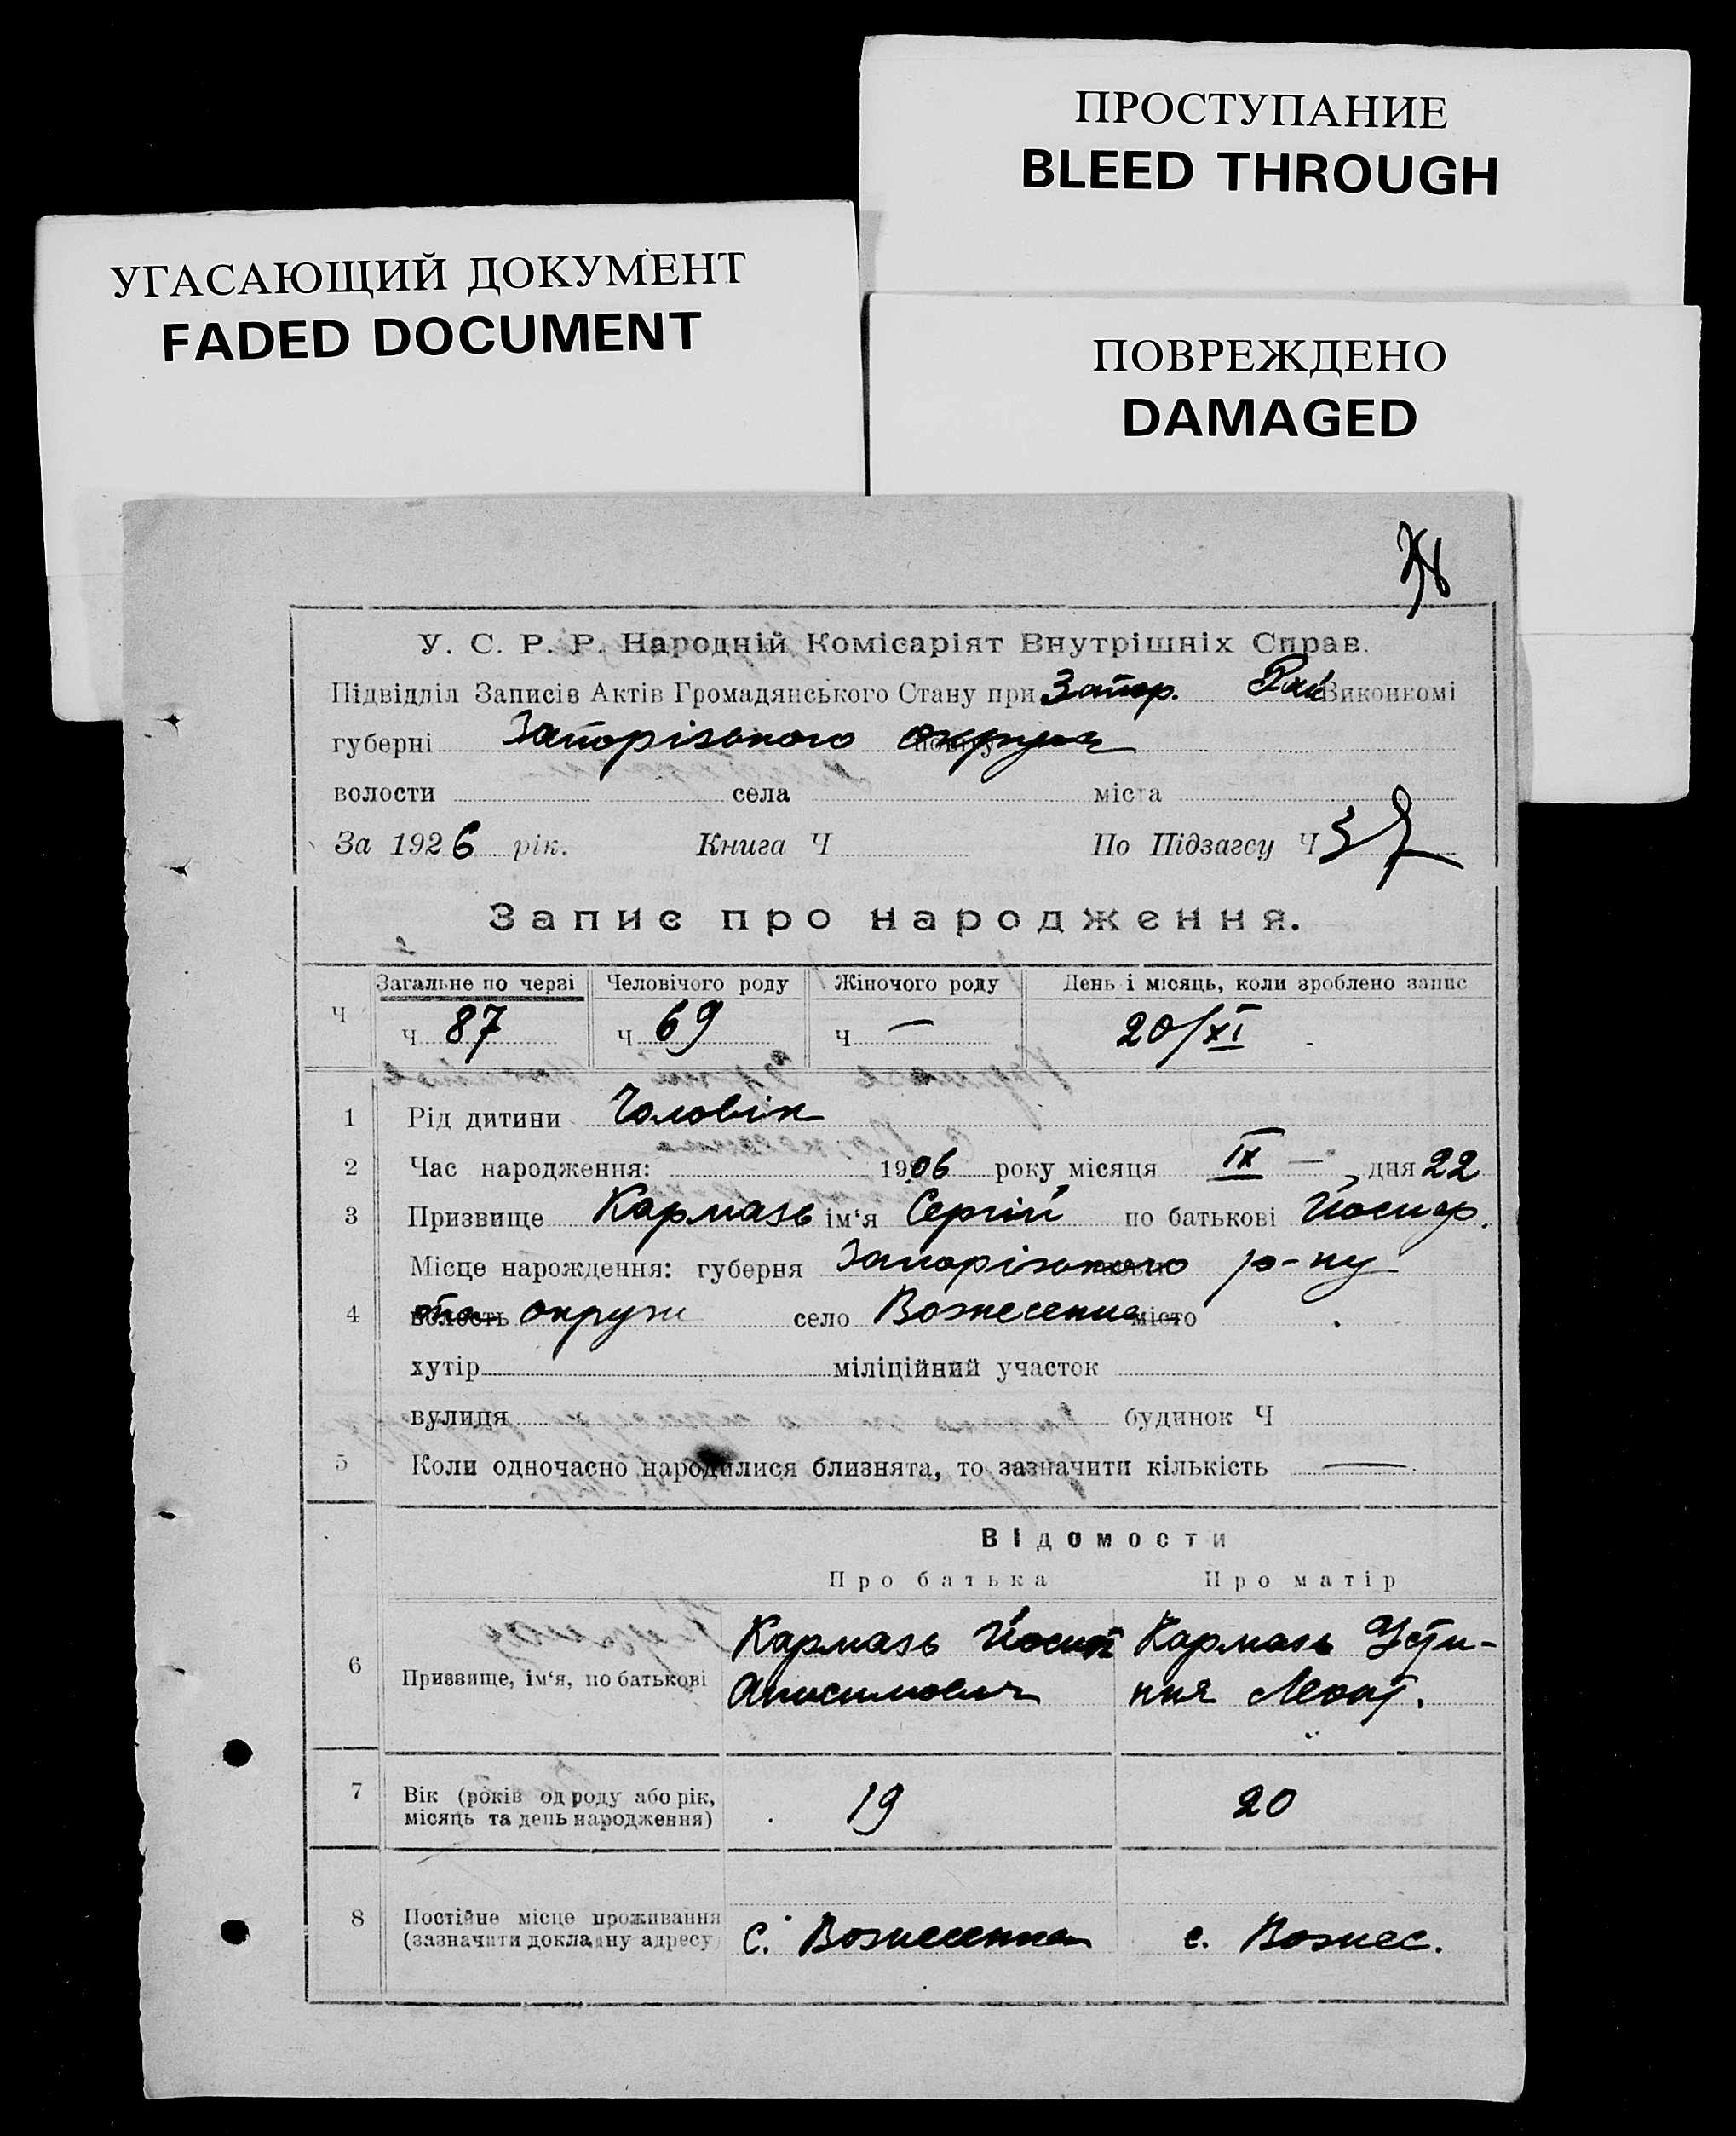 ПРОСТУПАНИЕ
BLEED THROUGH
УГАСАЮЩИЙ ДОКУМЕНТ
FADED DOCUMENT
ПОВРЕЖДЕНО
DAMAGED
У. С. Р. Р. Народній Комісаріят Внутрішніх Справ.
Підвідділ Записів Актів Громадянського Стану при Запор. Рай Виконкомі
губерні Запорізького округи
волости села міста
За 1926 рік. Книга Ч По Підзагсу Ч
Запис про народження.
Ч Загальне по черзі Человічого роду Жіночого роду День і місяць, коли зроблено запис
Ч 87 Ч 69 Ч — 20/XI
1 Рід дитини Чоловік
2 Час народження: 1906 року місяця IX — дня 22
3 Призвище Кармазь ім'я Сергій по батькові Йосиф.
Місце нарождення: губерня Запорізького р-ну
4 волость округи село Вознесенка місто
хутір міліційний участок
вулиця будинок Ч
5 Коли одночасно народилися близнята, то зазначити кількість —
Відомости
Про батька Про матір
6 Призвище, ім'я, по батькові Кармазь Йосип Кармазь Усти-
Анисимович ння Леонт.
7 Вік (років од роду або рік, 19 20
місяць та день народження)
8 Постійне місце проживання
(зазначити докладну адресу) с. Вознесенка с. Вознес.